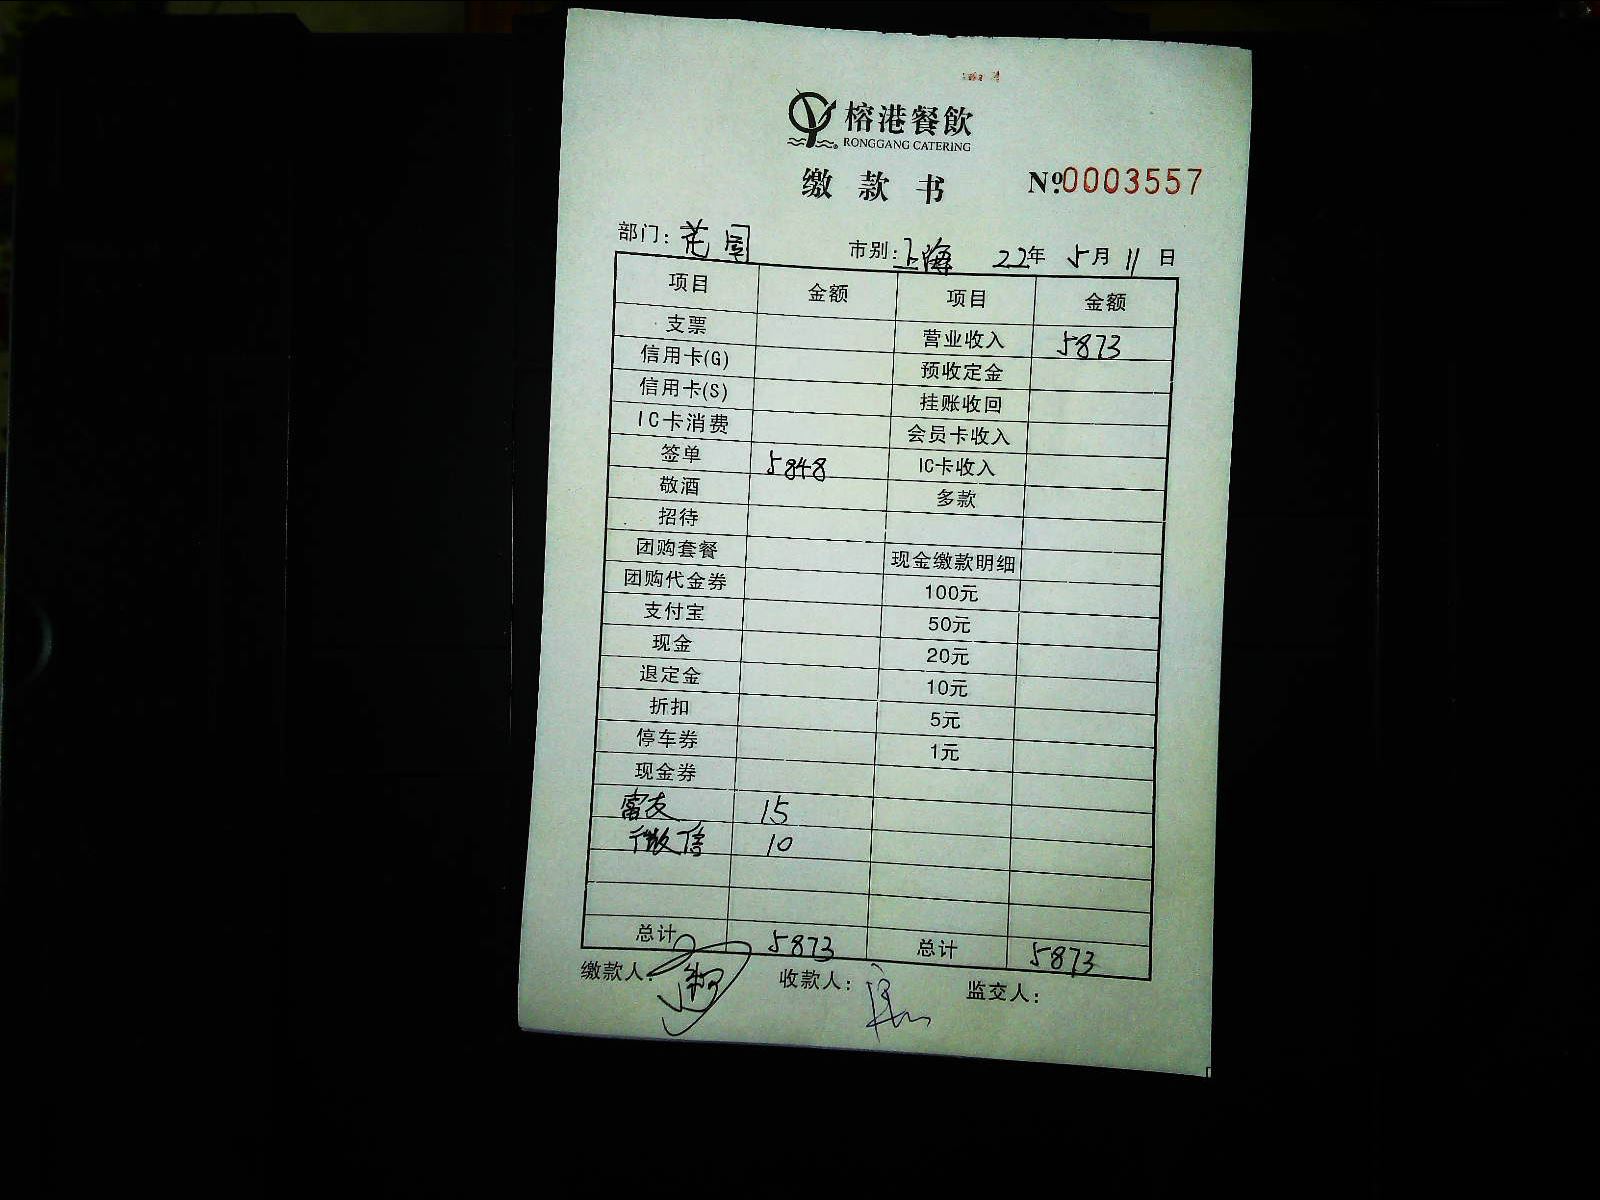 榕港餐飲
RONGGANG CATERING
缴款书 №0003557
部门：花园 市别：上海 22年5月11日
项目 金额 项目 金额
支票 营业收入 5873
信用卡(G) 预收定金
信用卡(S) 挂账收回
IC卡消费 会员卡收入
签单 5848 IC卡收入
敬酒 多款
招待
团购套餐 现金缴款明细
团购代金券 100元
支付宝 50元
现金 20元
退定金 10元
折扣 5元
停车券 1元
现金券
富友 15
微信 10
总计 5873 总计 5873
缴款人： 收款人： 监交人：